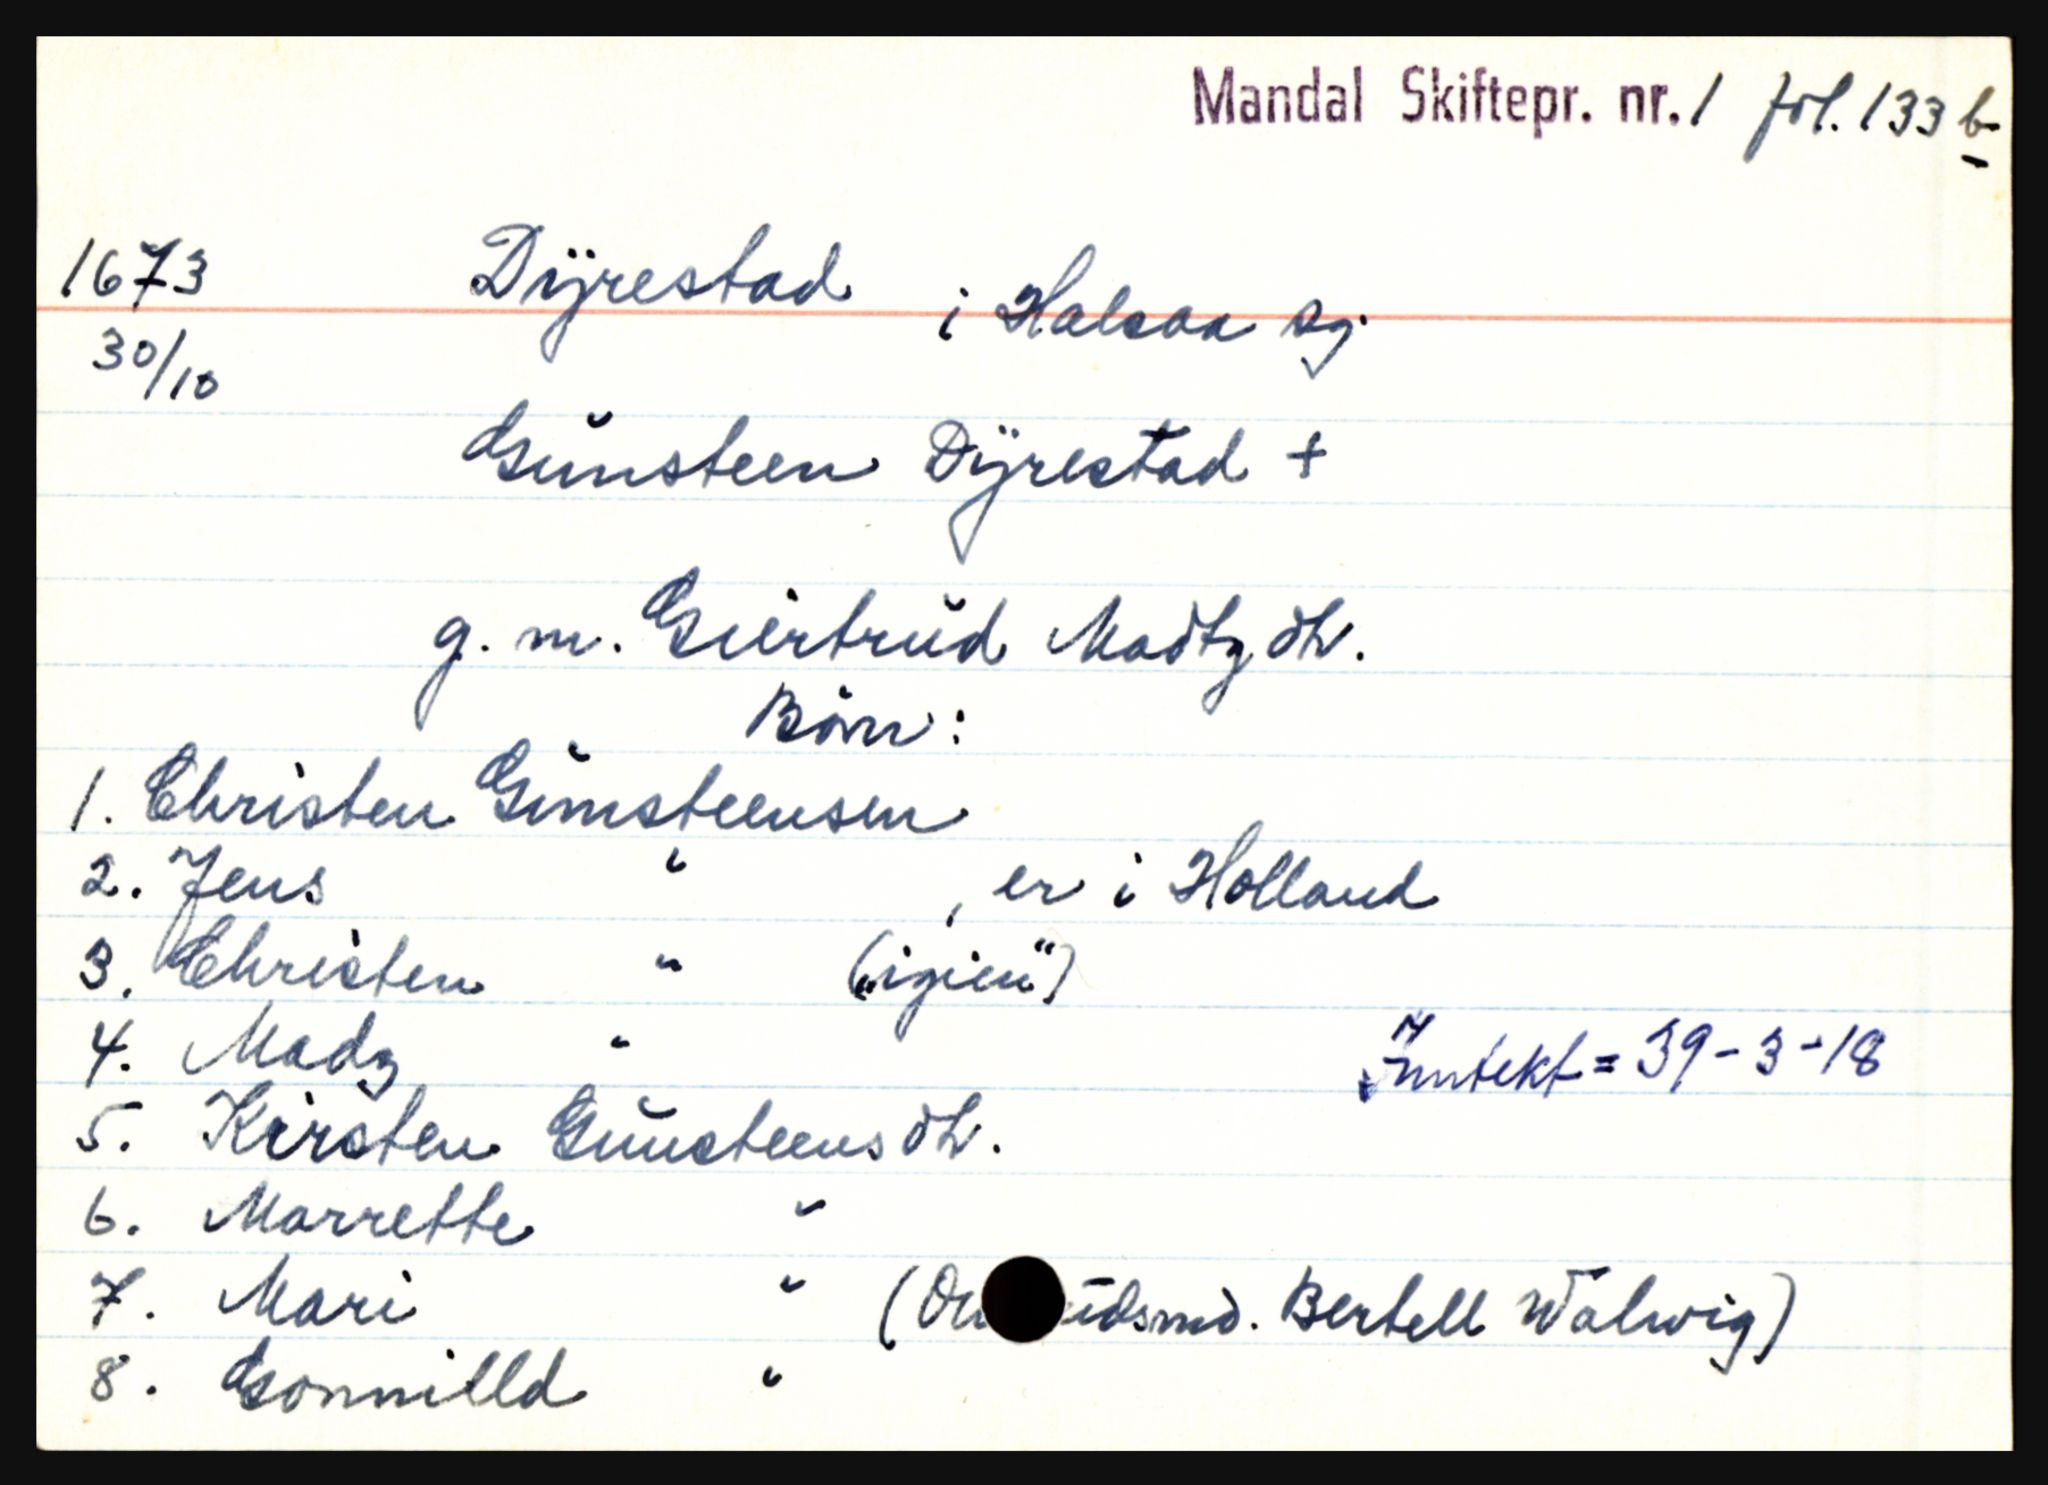 Mandal Skiftepr. nr. 1 fol. 133 b
1673 Dÿrestad i Halsaa sg.
30/10
Gŭnsteen Dÿrestad +
g. m. Giertrŭd Madtz dtr.
Børn:
1. Christen Gŭnsteensen
2. Jens " , er i Holland
3. Christen " („igien“)
4. Madz "
Inntekt = 39-3-18
5. Kirsten Gŭnsteens dtr.
6. Marrette "
7. Mari " ( Bertell Walwig)
8. Gonnilld "